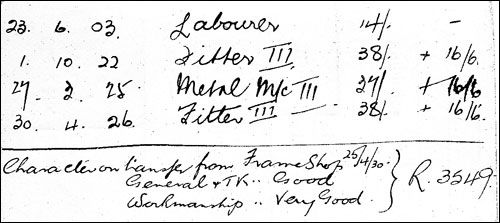 23. 6. 03. Labourer 14/. -
1. 10. 22 Fitter III 38/. + 16/6
27. 2. 25. Metal M/c III 27/. + 16/6
30. 4. 26. Fitter III — 38/. + 16/6.
Character on transfer from Frame Shop 25/4/30.
General & TK .. Good
Workmanship .. Very Good.
R. 3549.